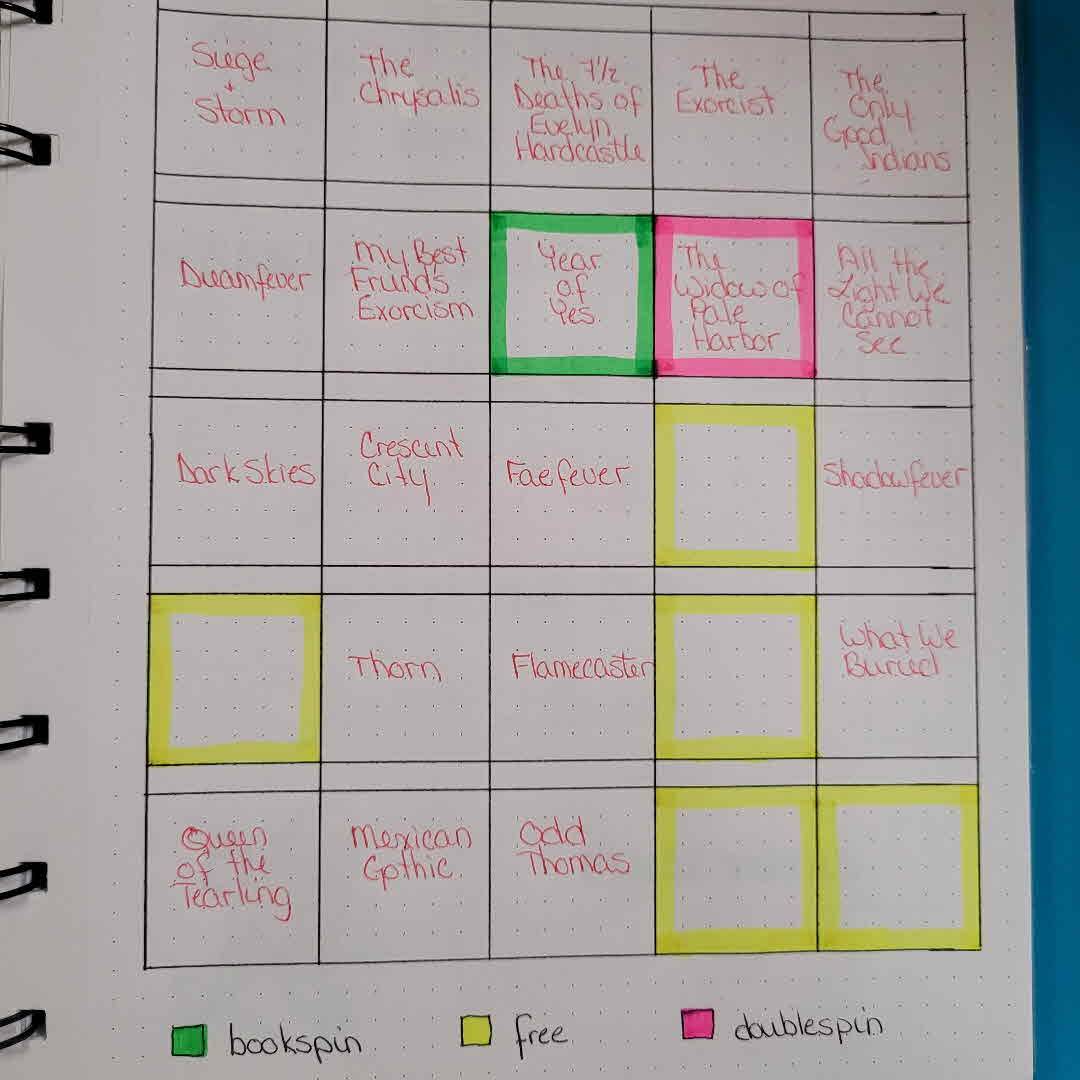 Siege
+
Storm
The
Chrysalis
The 7½
Deaths of
Evelyn
Hardcastle
The
Exorcist
The
Only
Good
Indians
Dreamfever
My Best
Friends
Exorcism
Year
of
Yes
The
Widow of
Pale
Harbor
All the
Light We
Cannot
See
Dark Skies
Crescent
City
Faefever
Shadowfever
Thorn
Flamecaster
What We
Buried
Queen
of the
Tearling
Mexican
Gothic
Odd
Thomas
bookspin
free
doublespin